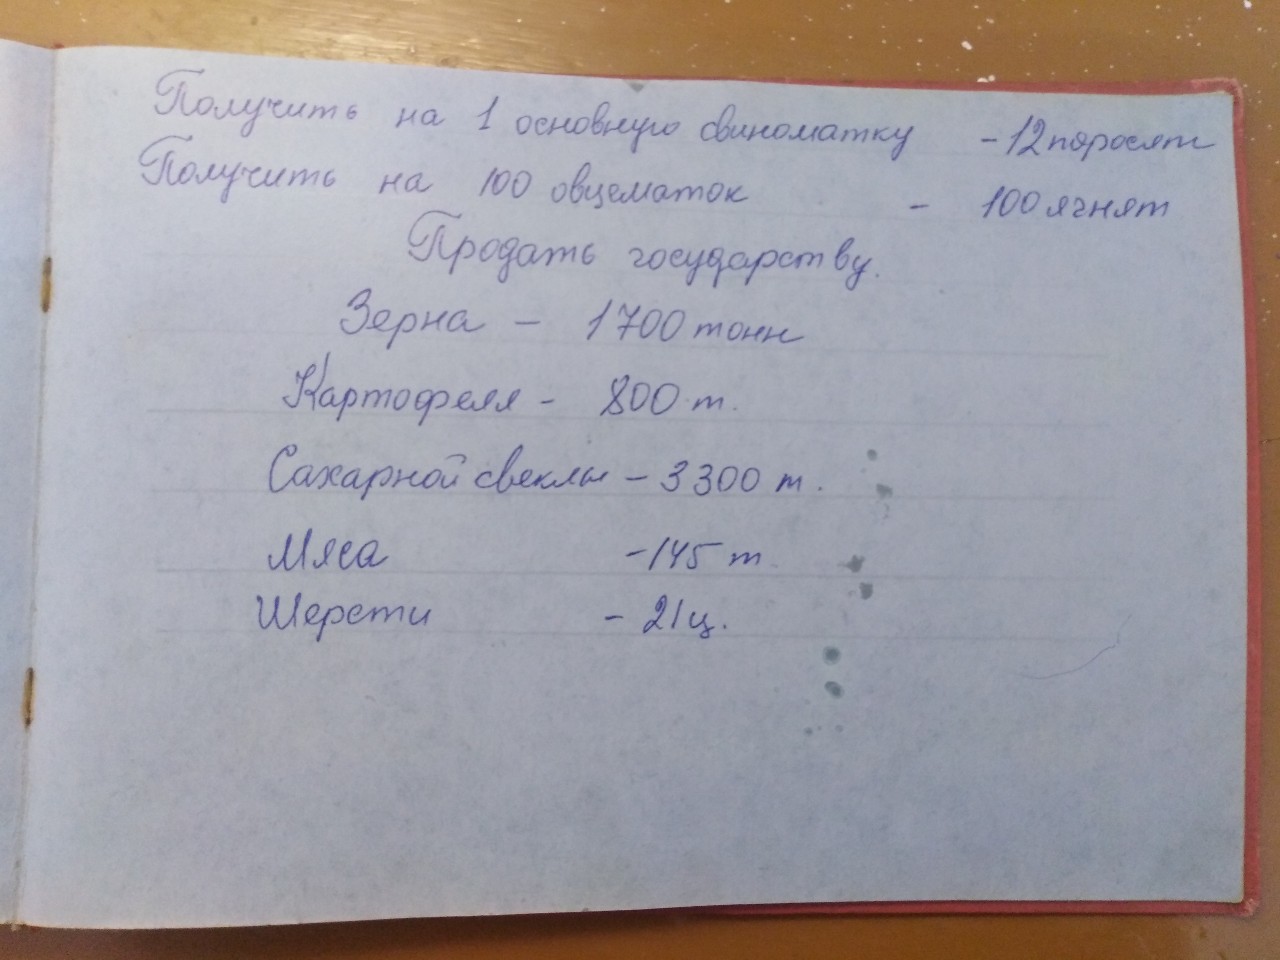 Получить на 1 основную свиноматку - 12 поросят
Получить на 100 овцематок - 100 ягнят
Продать государству.
Зерна - 1700 тонн
Картофеля - 800 т.
Сахарной свеклы - 3300 т.
Мяса - 145 т
Шерсти - 21 ц.